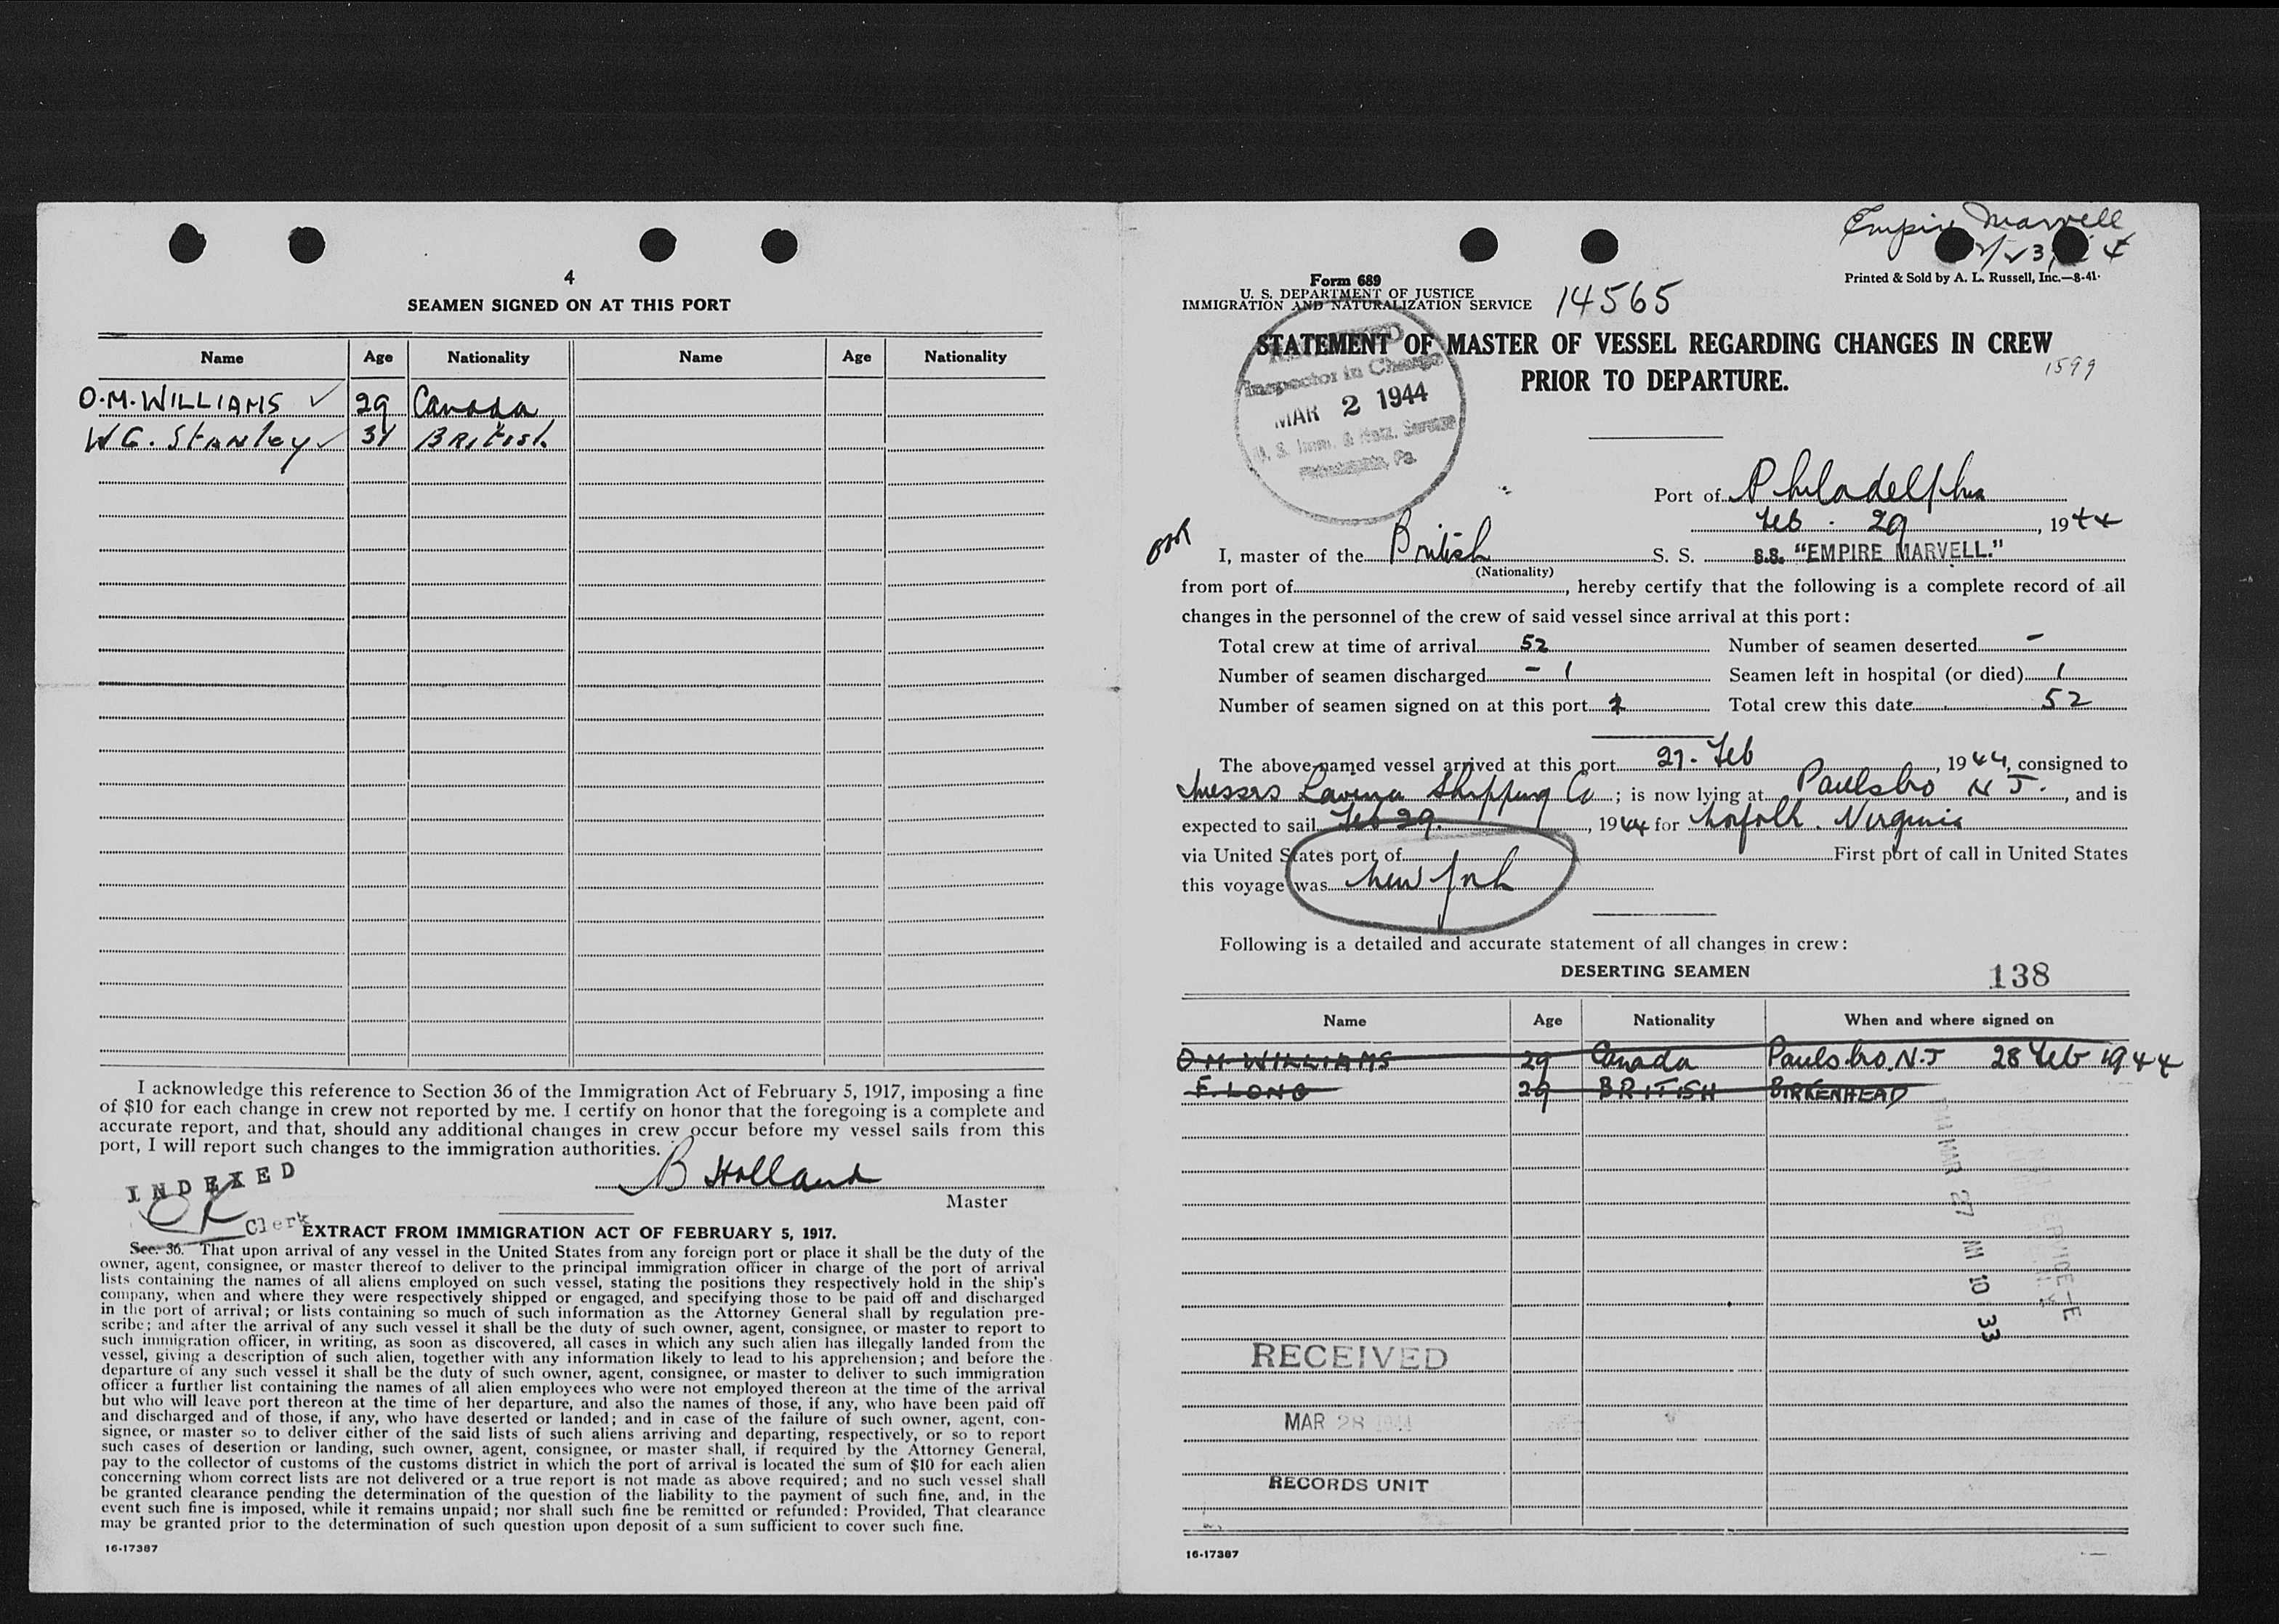 4
SEAMEN SIGNED ON AT THIS PORT
Name Age Nationality Name Age Nationality
O.M. WILLIAMS ✓ 29 Canada
W G. Stanley ✓ 31 British
I acknowledge this reference to Section 36 of the Immigration Act of February 5, 1917, imposing a fine
of $10 for each change in crew not reported by me. I certify on honor that the foregoing is a complete and
accurate report, and that, should any additional changes in crew occur before my vessel sails from this
port, I will report such changes to the immigration authorities.
B Holland
Master
INDEXED
Clerk
EXTRACT FROM IMMIGRATION ACT OF FEBRUARY 5, 1917.
Sec. 36. That upon arrival of any vessel in the United States from any foreign port or place it shall be the duty of the
owner, agent, consignee, or master thereof to deliver to the principal immigration officer in charge of the port of arrival
lists containing the names of all aliens employed on such vessel, stating the positions they respectively hold in the ship's
company, when and where they were respectively shipped or engaged, and specifying those to be paid off and discharged
in the port of arrival; or lists containing so much of such information as the Attorney General shall by regulation pre-
scribe; and after the arrival of any such vessel it shall be the duty of such owner, agent, consignee, or master to report to
such immigration officer, in writing, as soon as discovered, all cases in which any such alien has illegally landed from the
vessel, giving a description of such alien, together with any information likely to lead to his apprehension; and before the
departure of any such vessel it shall be the duty of such owner, agent, consignee, or master to deliver to such immigration
officer a further list containing the names of all alien employees who were not employed thereon at the time of the arrival
but who will leave port thereon at the time of her departure, and also the names of those, if any, who have been paid off
and discharged and of those, if any, who have deserted or landed; and in case of the failure of such owner, agent, con-
signee, or master so to deliver either of the said lists of such aliens arriving and departing, respectively, or so to report
such cases of desertion or landing, such owner, agent, consignee, or master shall, if required by the Attorney General,
pay to the collector of customs of the customs district in which the port of arrival is located the sum of $10 for each alien
concerning whom correct lists are not delivered or a true report is not made as above required; and no such vessel shall
be granted clearance pending the determination of the question of the liability to the payment of such fine, and, in the
event such fine is imposed, while it remains unpaid; nor shall such fine be remitted or refunded: Provided, That clearance
may be granted prior to the determination of such question upon deposit of a sum sufficient to cover such fine.
16-17387
Empire Marvell
Printed & Sold by A. L. Russell, Inc.—8-41
Form 689
U. S. DEPARTMENT OF JUSTICE
IMMIGRATION AND NATURALIZATION SERVICE 14565
STATEMENT OF MASTER OF VESSEL REGARDING CHANGES IN CREW
1599
PRIOR TO DEPARTURE.
Inspector in Charge
MAR 2 1944
U. S. Imm. & Natz. Service
Philadelphia, Pa.
Port of Philadelphia
Feb. 29, 1944
I, master of the British S. S. S.S. "EMPIRE MARVELL."
(Nationality)
from port of, hereby certify that the following is a complete record of all
changes in the personnel of the crew of said vessel since arrival at this port:
Total crew at time of arrival 52 Number of seamen deserted -
Number of seamen discharged - 1 Seamen left in hospital (or died) 1
Number of seamen signed on at this port 2 Total crew this date 52
The above-named vessel arrived at this port 27. Feb, 1944, consigned to
Messrs Lavina Shipping Co; is now lying at Paulsbro N J., and is
expected to sail Feb 29., 1944 for Norfolk. Virginia
via United States port of First port of call in United States
this voyage was New York
Following is a detailed and accurate statement of all changes in crew:
DESERTING SEAMEN 138
Name Age Nationality When and where signed on
O M WILLIAMS 29 Canada Paulsbro. N.J 28 Feb 1944
F. LONG 29 BRITISH BIRKENHEAD
1944 MAR 27 AM 10 33
RECEIVED
MAR 28 1944
RECORDS UNIT
16-17387